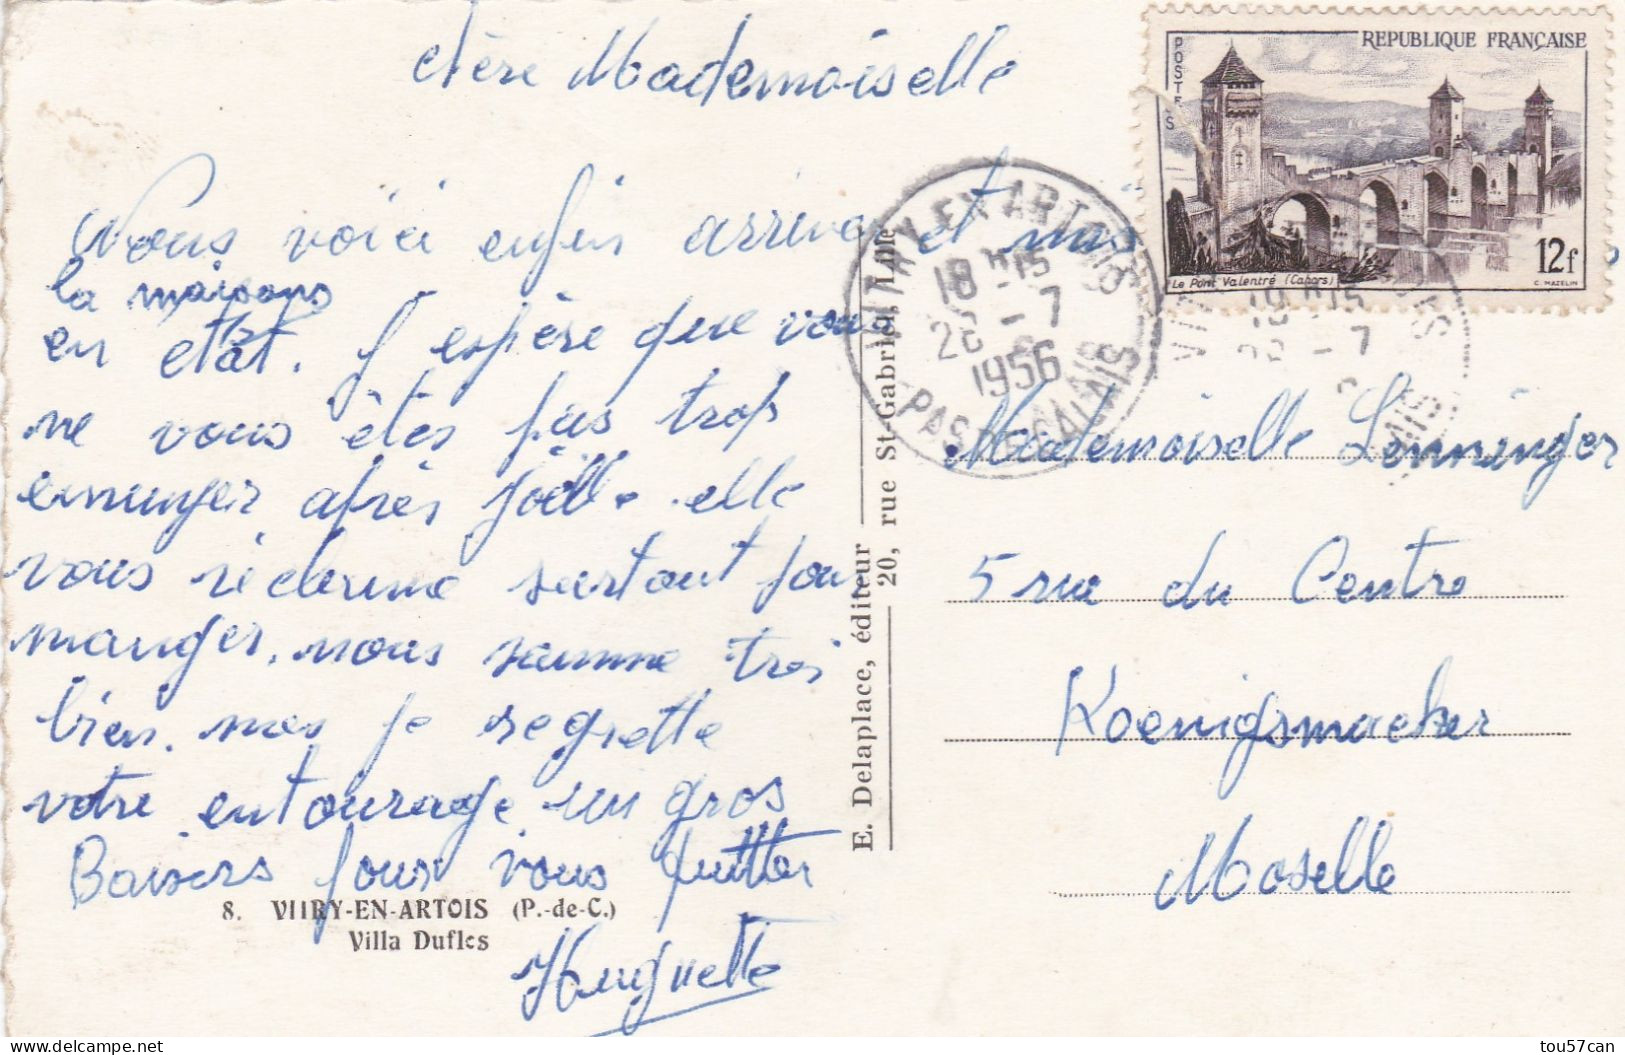 chère Mademoiselle
Nous voici enfin arriver et mis
la maisons
en etat. J espère que vous
ne vous êtes pas trop
ennuyer après Joëlle. elle
vous réclame surtout pour
manger, nous somme tres
bien. mes je regrette
votre entourage. un gros
Baisers pour vous quitter
Huguette
8. VITRY-EN-ARTOIS (P.-de-C.)
Villa Dufles
E. Delaplace, éditeur
20, rue St-Gabriel, Lille
REPUBLIQUE FRANÇAISE
POSTES
12f
Le Pont Valentré (Cahors)
C. MAZELIN
VITRY EN ARTOIS
18 H 15
26 - 7
1956
PAS DE CALAIS
Mademoiselle Lenninger
5 rue du Centre
Koenigsmacker
Moselle
tou57can